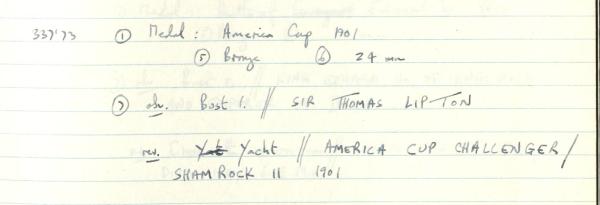 337'73 ① Medal : America Cup 1901
⑤ Bronze ⑥ 24 mm
⑦ obv. Bust l. // SIR THOMAS LIPTON
rev. Yat Yacht // AMERICA CUP CHALLENGER /
SHAMROCK II 1901